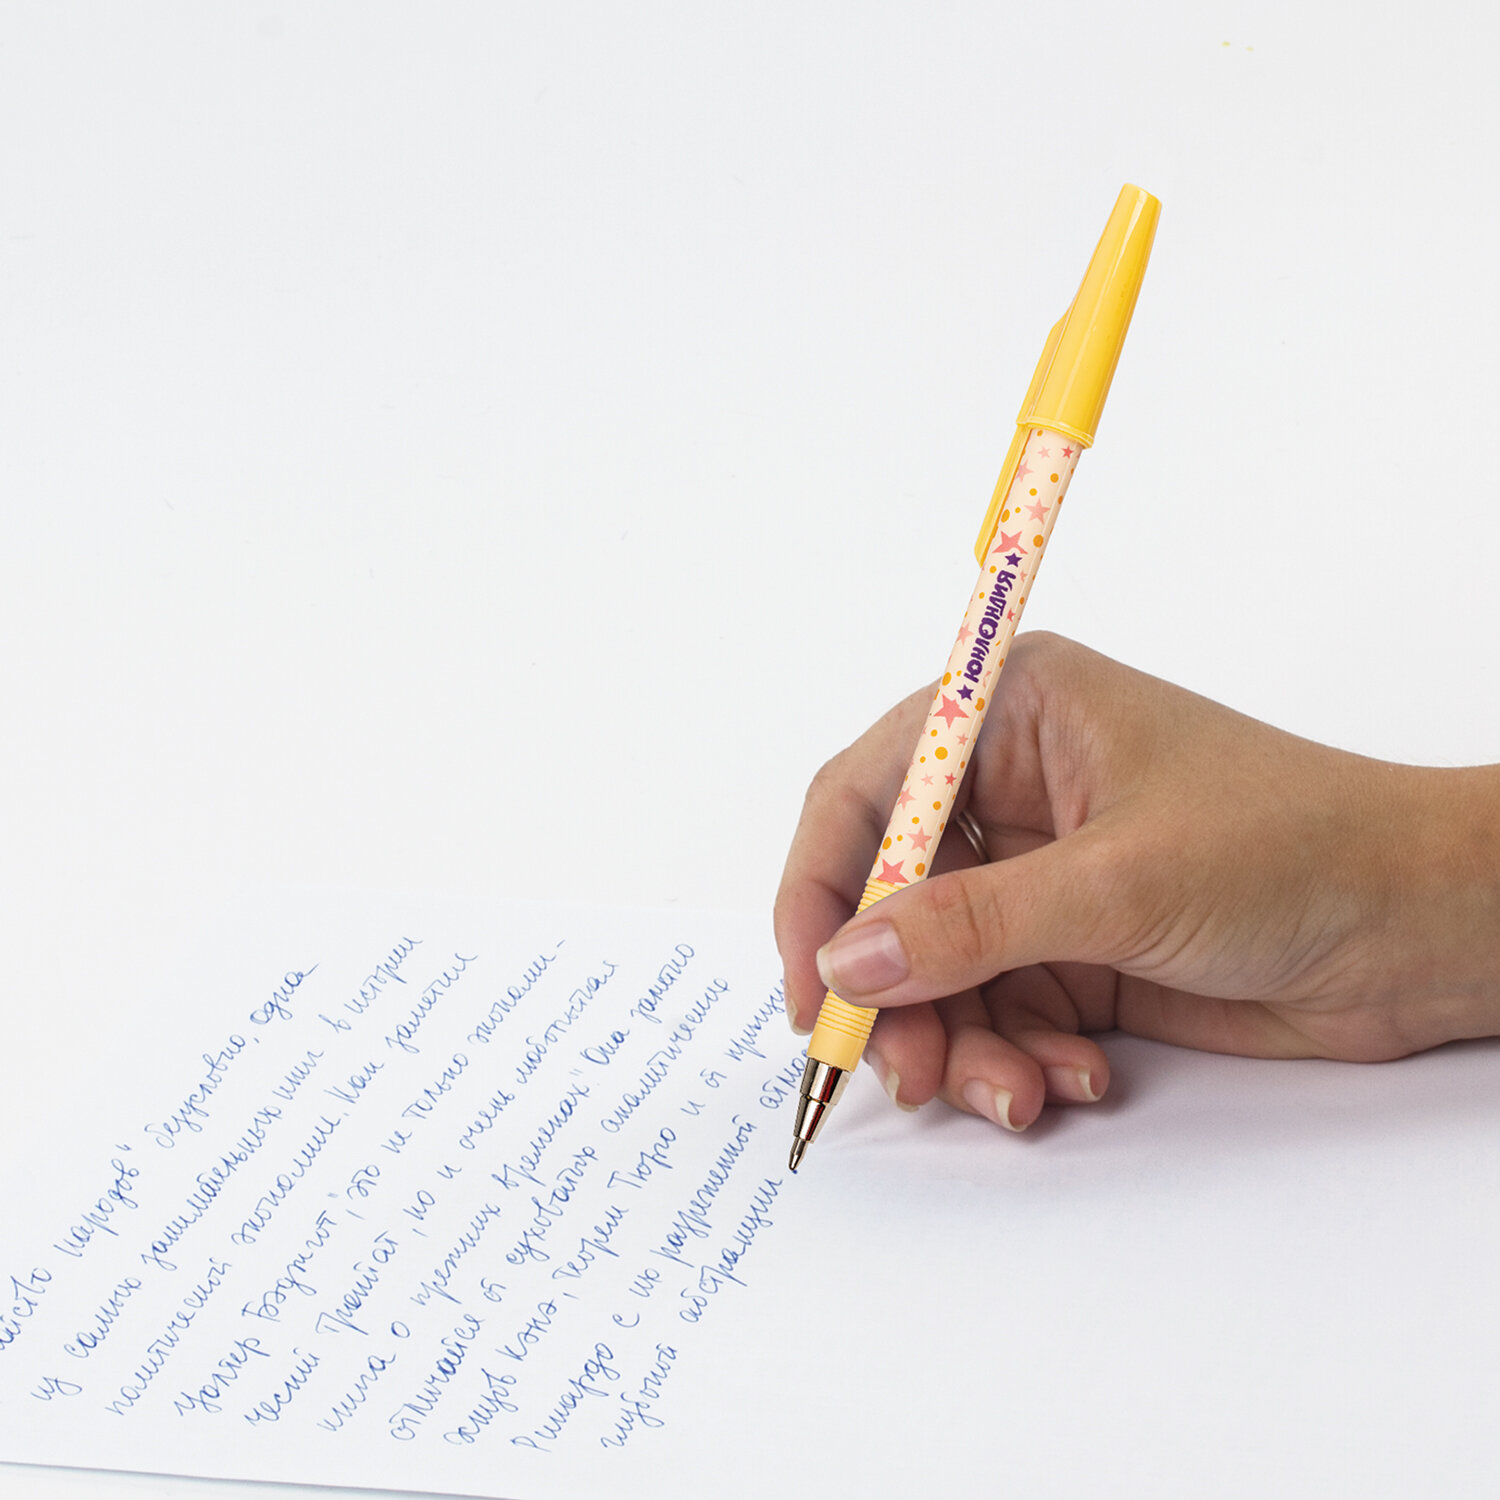 ЮНЛАНДИЯ
народов" безусловно, одна
из самых занимательных книг в истории
политической экономии. Как заметил
Уолтер Бэджгот, "это не только экономи-
ческий трактат, но и очень любопытная
книга о прежних временах". Она заметно
отличается от суховатых аналитических
этюдов Кэнэ, теорем Тюрго и от
Рикардо с их разреженной
глубокой абстракции